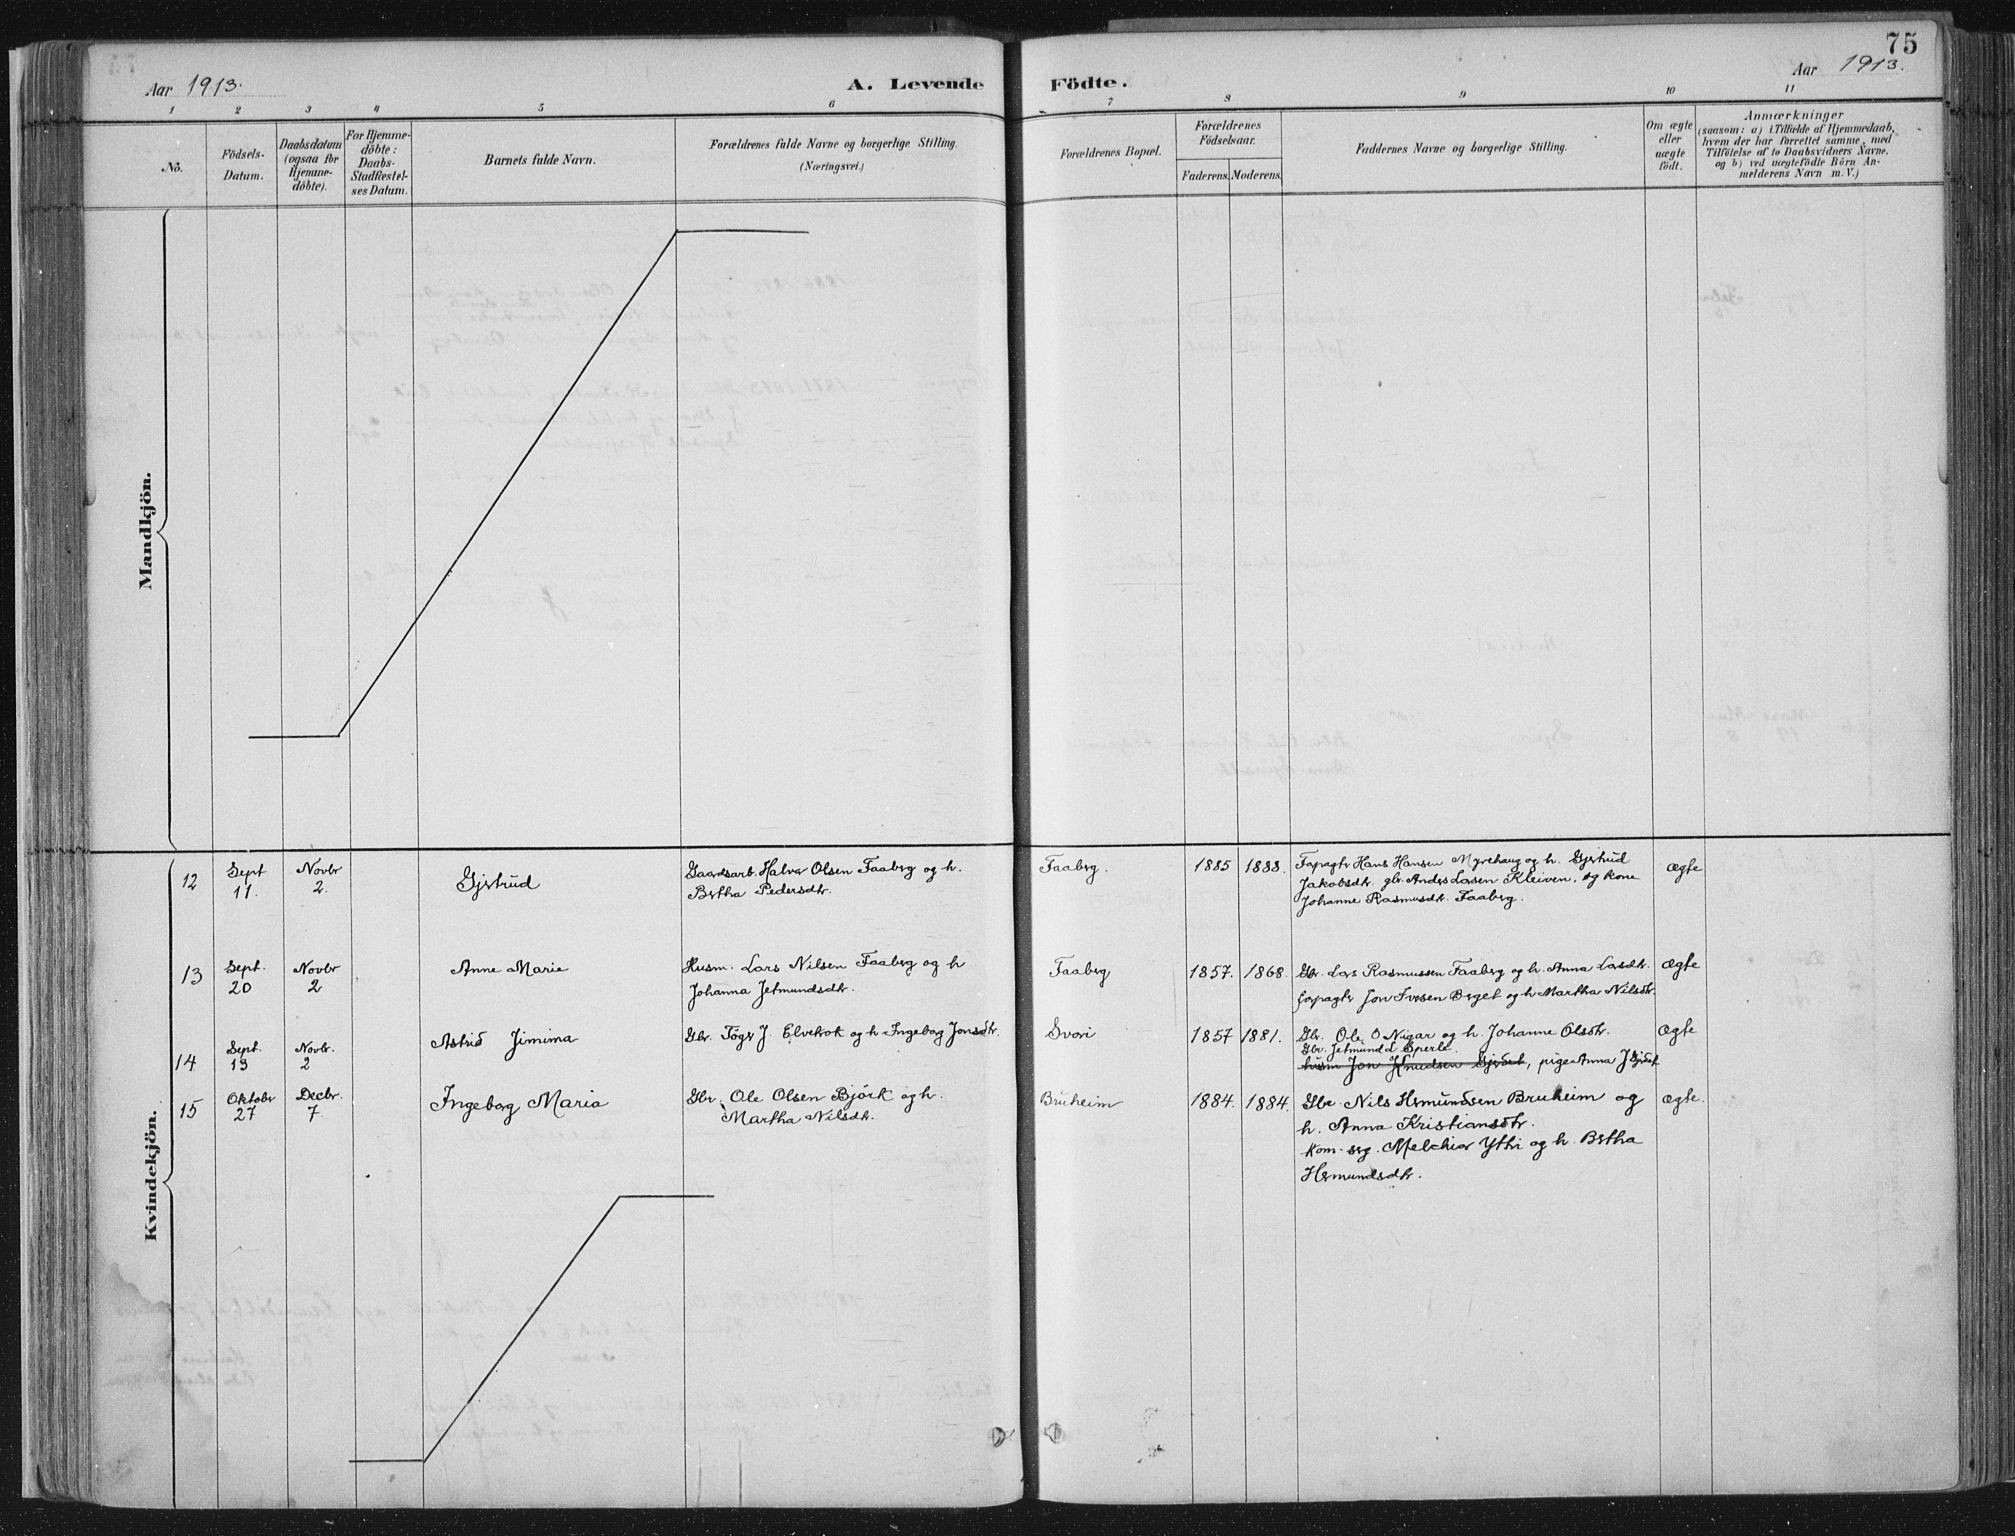 75
Aar 1913.
A. Levende Födte.
Aar 1913.
1 2 3 4 5 6 7 8 9 10 11
No.
Födsels-
Datum.
Daabsdatum
(ogsaa for
Hjemme-
döbte).
For Hjemme-
döbte:
Daabs-
Stadfæstel-
ses Datum.
Barnets fulde Navn.
Forældrenes fulde Navne og borgerlige Stilling.
(Næringsvei.)
Forældrenes Bopæl.
Forældrenes
Födselsaar.
Faderens. Moderens.
Faddernes Navne og borgerlige Stilling.
Om ægte
eller
uægte
født.
Anmærkninger
(saasom: a) i Tilfælde af Hjemmedaab,
hvem der har forrettet samme, med
Tilföielse af to Daabsvidners Navne.
og b) ved uægtefödte Börn An-
melderens Navn m. V.)
Mandkjön.
Kvindekjön.
12
Sept
11.
Novbr
2.
Gjertrud
Gaardsarb. Halvor Olsen Faaberg og h.
Bertha Pedersdtr.
Faaberg.
1885 1888.
Forpagtr Hans Hansen Myrehaug og h. Gjertrud
Jakobsdtr. gbr. Anders Larsen Kleiven. og kone
Johanne Rasmusdtr. Faaberg.
Ægte
13
Sept.
20
Novbr
2
Anne Marie
Husm. Lars Nilsen Faaberg og h
Johanna Jetmundsdtr.
Faaberg
1857. 1868.
Gbr. Lars Rasmussen Faaberg og h. Anna Larsdtr.
forpagtr Jon Iversen Berget og h Martha Nilsdtr.
Ægte
14
Sept.
13
Novbr.
2
Astrid Jimima
Gbr. Töger J. Elvekrok og h. Ingeborg Jonsdtr.
Svori
1857 1881.
Gbr. Ole O Nigar og h. Johanne Olsdtr.
Gbr. Jetmund L Sperle.
husm Jon Knudsen Gjerdet, pige Anna J Gjerdet
Ægte
15
Oktobr
27
Decbr.
7
Ingeborg Maria
Gbr. Ole Olsen Björk og h.
Martha Nilsdtr.
Bruheim
1884. 1884.
Gbr. Nils Hermundsen Bruheim og
h. Anna Kristiansdtr.
Kom. serg. Melchior Ytri og h. Bertha
Hermundsdtr.
Ægte.